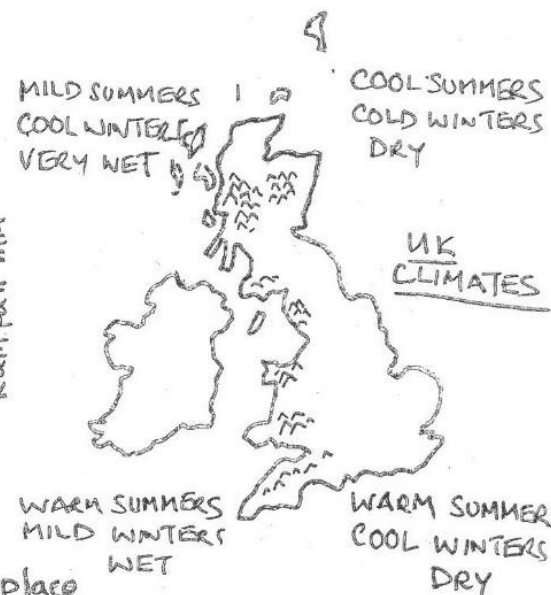 MILD SUMMERS
COOL WINTERS
VERY WET
COOL SUMMERS
COLD WINTERS
DRY
UK
CLIMATES
WARM SUMMERS
MILD WINTERS
WET
WARM SUMMER
COOL WINTERS
DRY
place